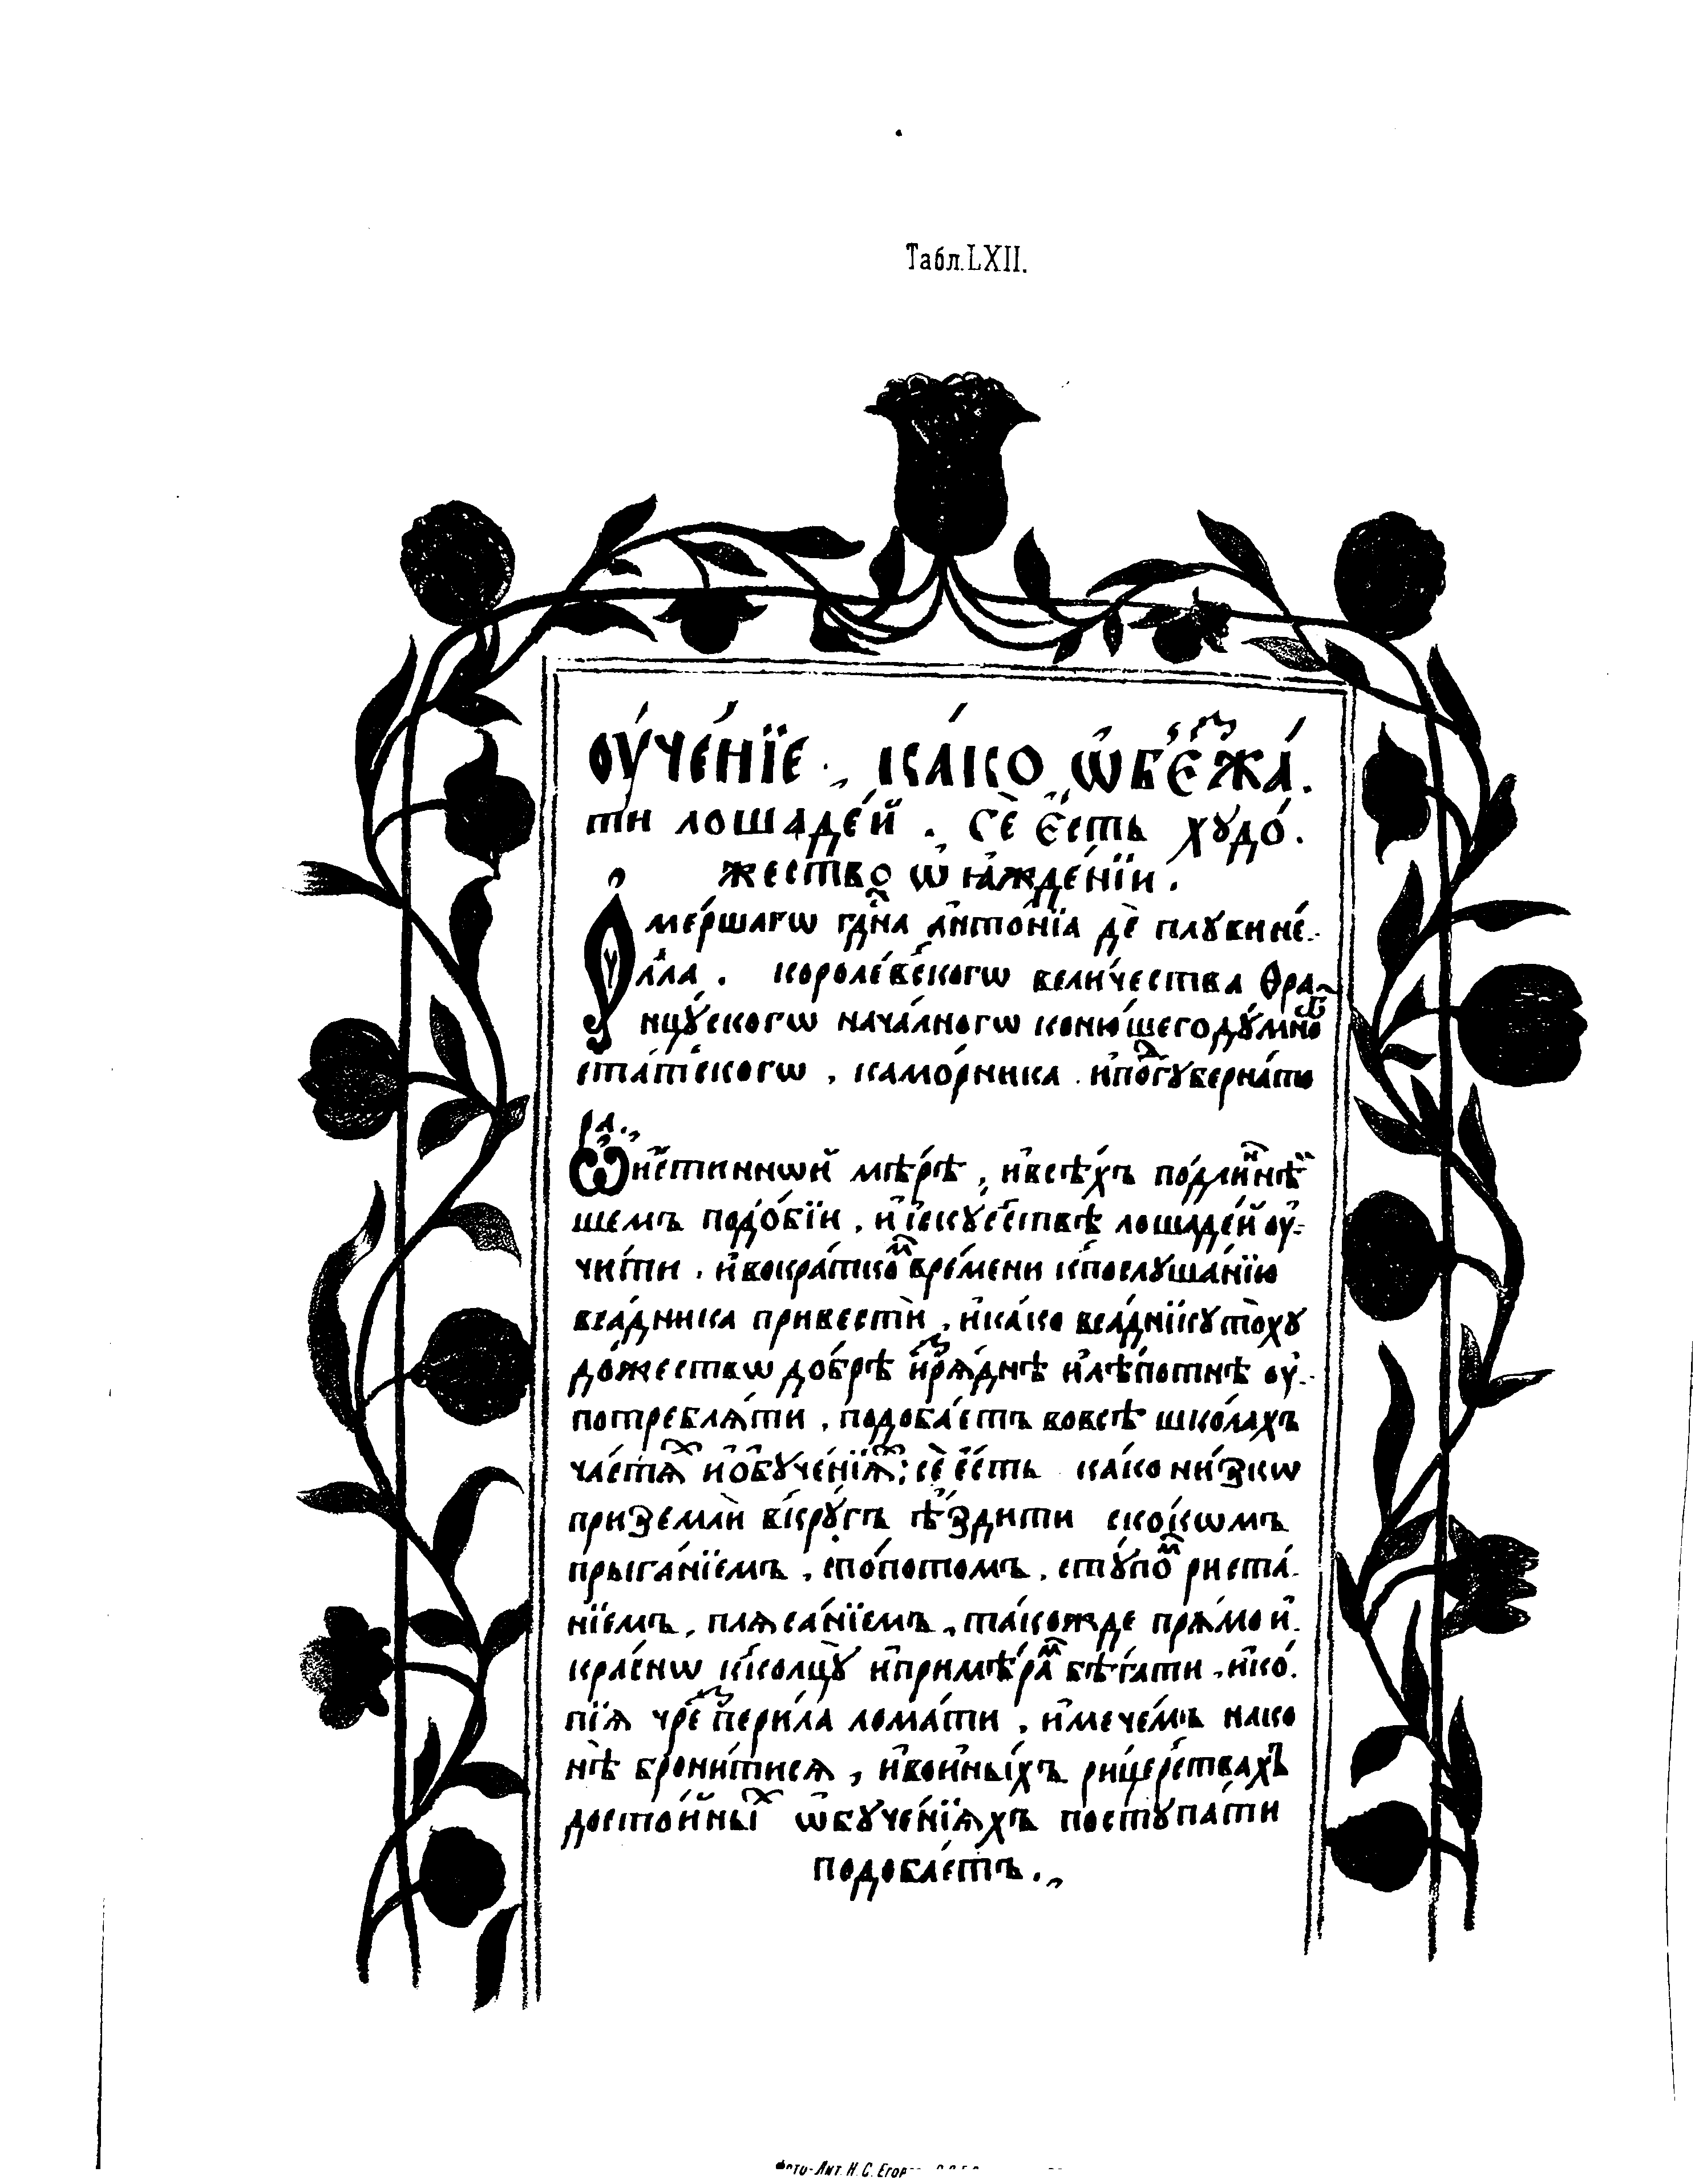 Табл. LXII.
ᲂу҆че́нїе. ка́кѡ ѡ҆б̾е́зжа́.
ти лошаде́й. сѐ є҆́сть худо́.
жество ѡ҆ ꙗ҆жде́нїи.
У мершагѡ гдⷭ҇на а҆нто́нїа дѐ плꙋвине́.
лла. короле́вскогѡ вели́чества Ѳра
нцꙋ́скогѡ нача́лногѡ коню́шего дꙋ́мно
ста́тскогѡ, камо́рника. и҆ пⷣогꙋберна́то
ра.
Ѡ҆ и҆́стиннѡй мѣ́рѣ, и҆ всѣ́хъ подли́ннѣй
шемъ подо́бїи, и҆ і҆скꙋ́сствѣ лошаде́й ᲂу҆
чи́ти, и҆ вокра́ткоⷨ вре́мени к̾послꙋша́нїю
вса́дника привестѝ, и҆ ка́ко вса́дникꙋ то̀ хꙋ
до́жествѡ до́брѣ и҆зрѧ́днѣ и҆ лѣ́потнѣ ᲂу҆
потреблѧ́ти, подоба́етъ вовсѣ шко́лахъ
ча́стѧⷯ и҆ ѻ҆бꙋче́нїѧⷯ; сѐ є҆́сть ка́ко ни́зкѡ
приземлѝ вкрꙋ́гъ ѣ҆́здити ско́кѡмъ
прыга́нїемъ, спо́потомъ, стꙋ́поⷨ риста́
нїемъ, плѧса́нїемъ, та́кожде прѧ́мо и҆
кра́снѡ к̾колцꙋ̀ и҆ примѣ́раⷨ бѣ́гати, и҆ ко́
пїѧ чреⷥ пери́ла лома́ти, и҆ мече́мъ нако
нѣ̀ брони́тисѧ, и҆ вои́ныхъ ри́церствахъ
досто́йныⷯ ѡ҆бꙋче́нїѧхъ постꙋпа́ти
подоба́етъ.